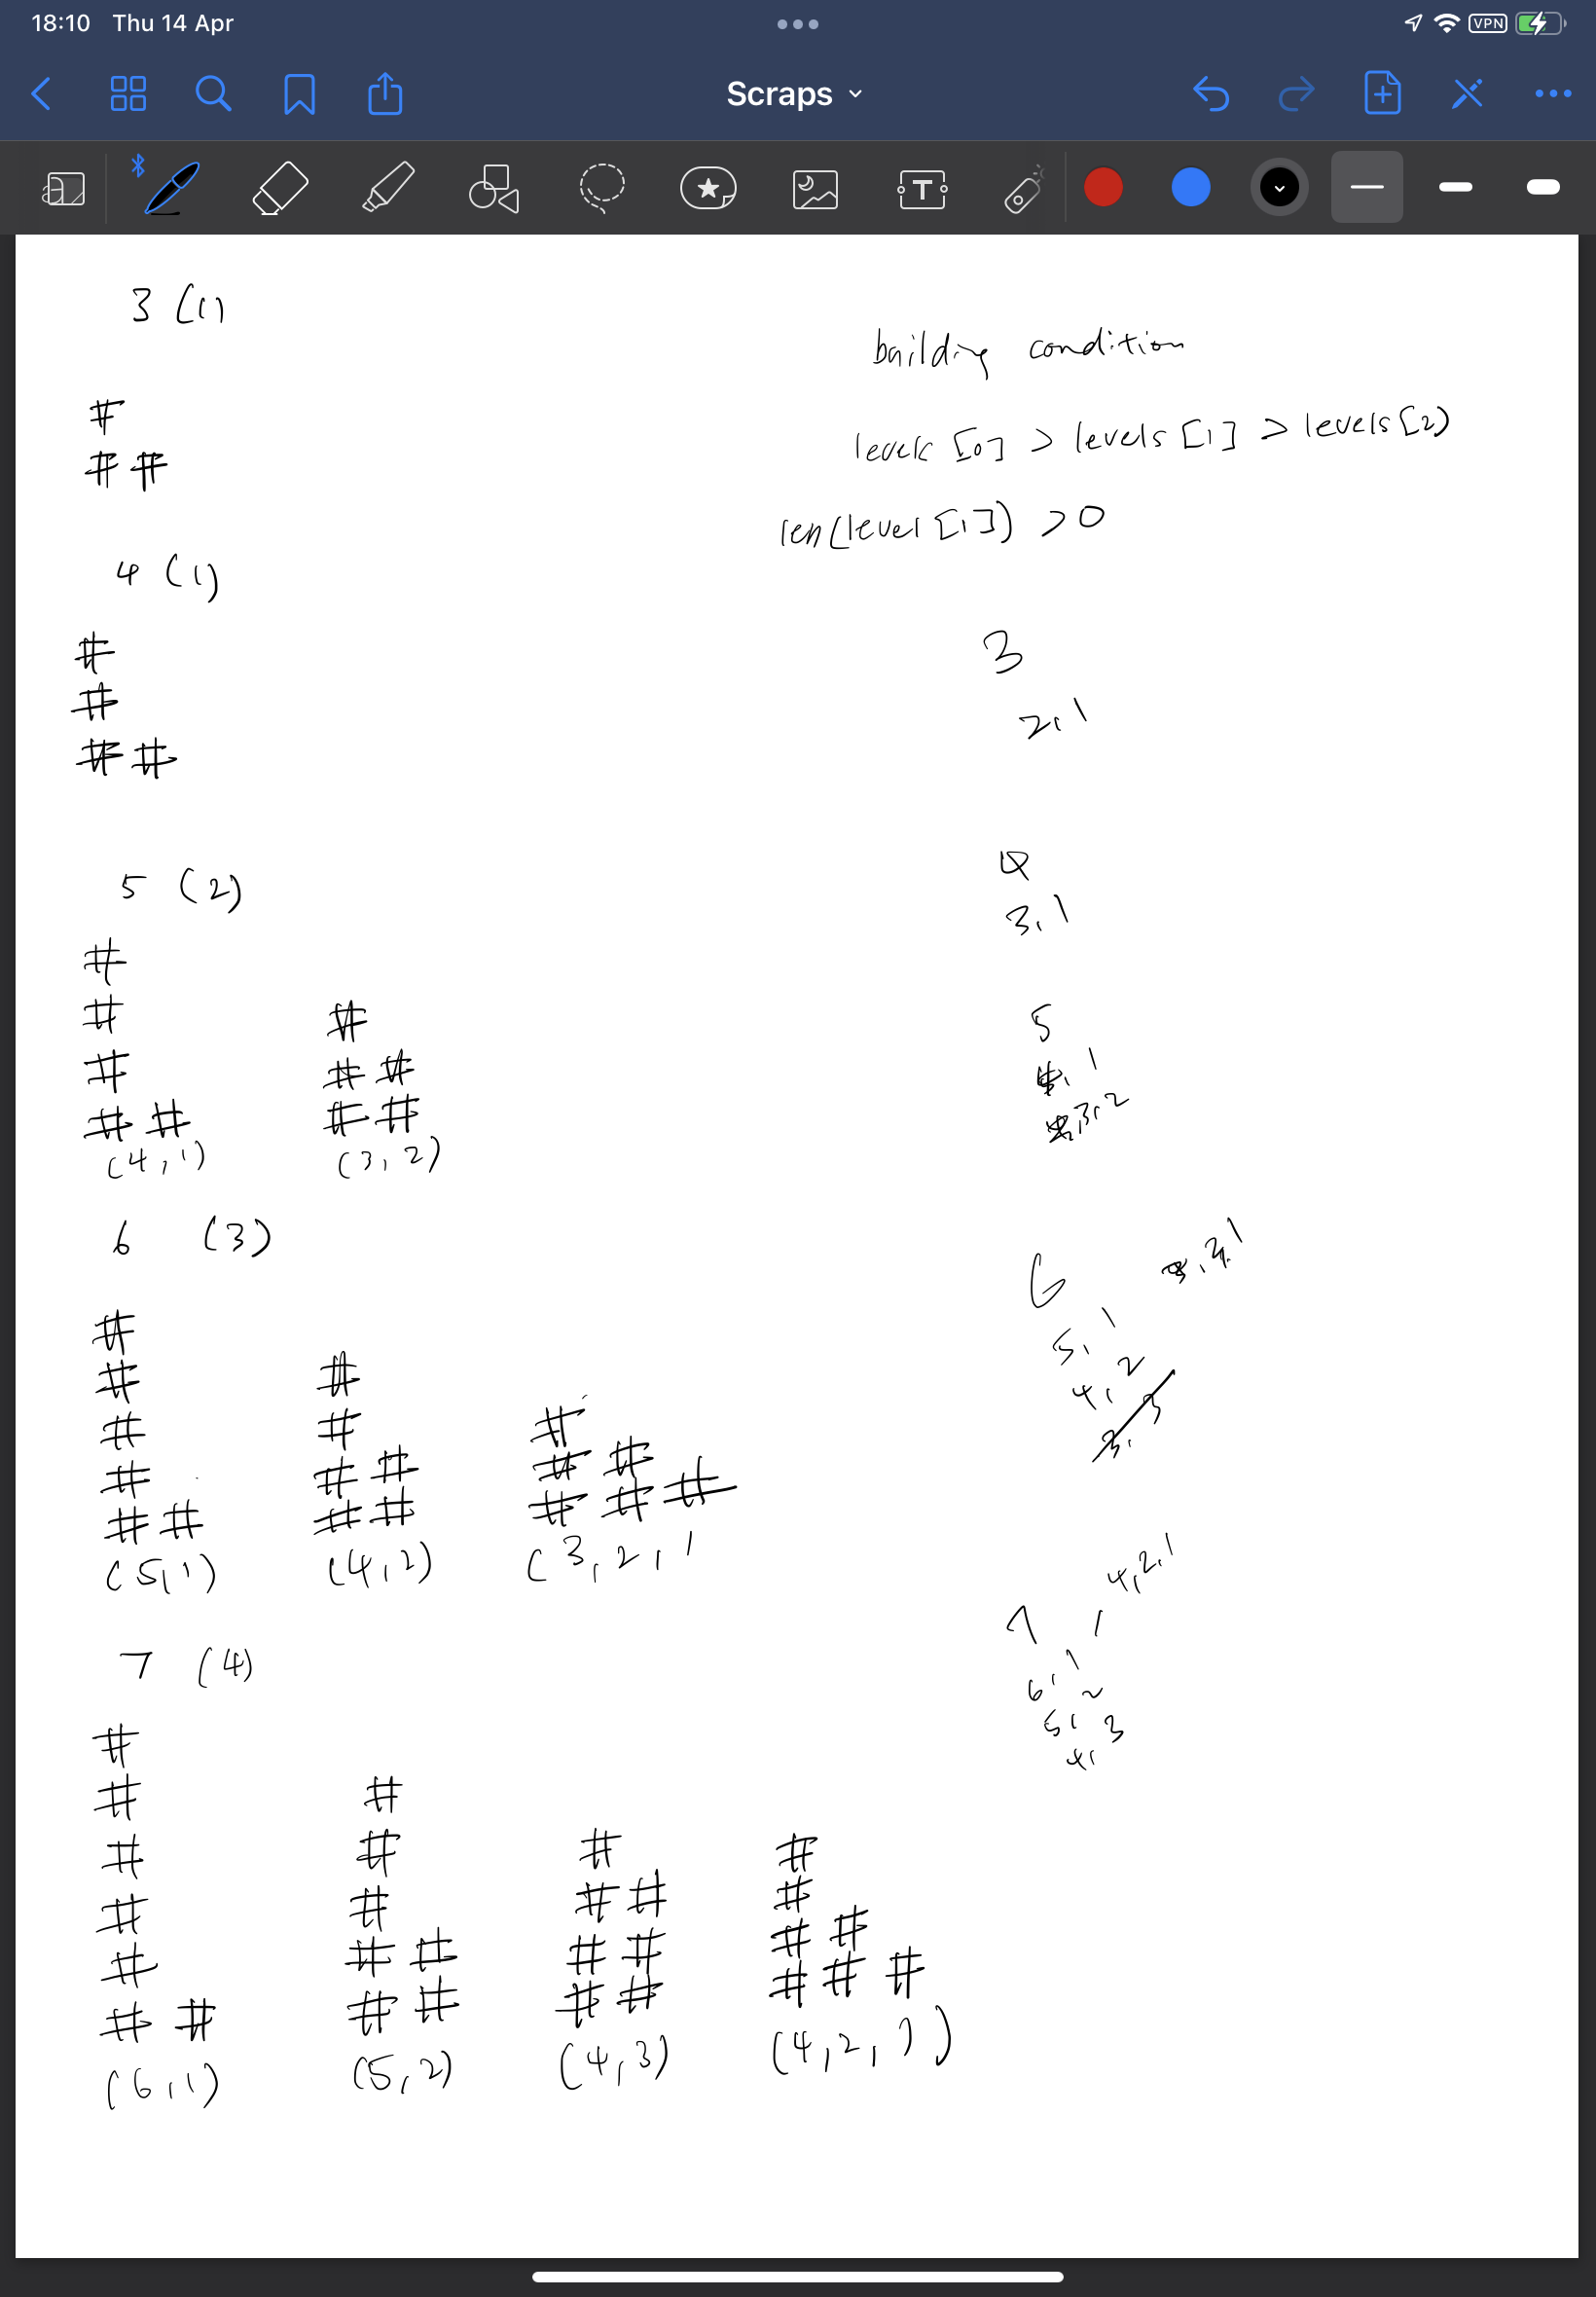 18:10 Thu 14 Apr
VPN
Scraps
T
3 (1)
#
# #
4 (1)
#
#
# #
5 (2)
#
#
#
# #
(4,1)
#
# #
# #
(3,2)
6 (3)
#
#
#
#
# #
(5,1)
#
#
# #
# #
(4,2)
#
# #
# # #
(3,2,1
7 (4)
#
#
#
#
#
# #
(6,1)
#
#
#
# #
# #
(5,2)
#
# #
# #
# #
(4,3)
#
#
# #
# # #
(4,2,1)
building condition
levels [0] > levels [1] > levels [2)
len(level [1]) > 0
3
2,1
4
3,1
5
4,1
3,2
6
3,2,1
5,1
4,2
3,3
7
1
4,2,1
6,1
5,2
4,3